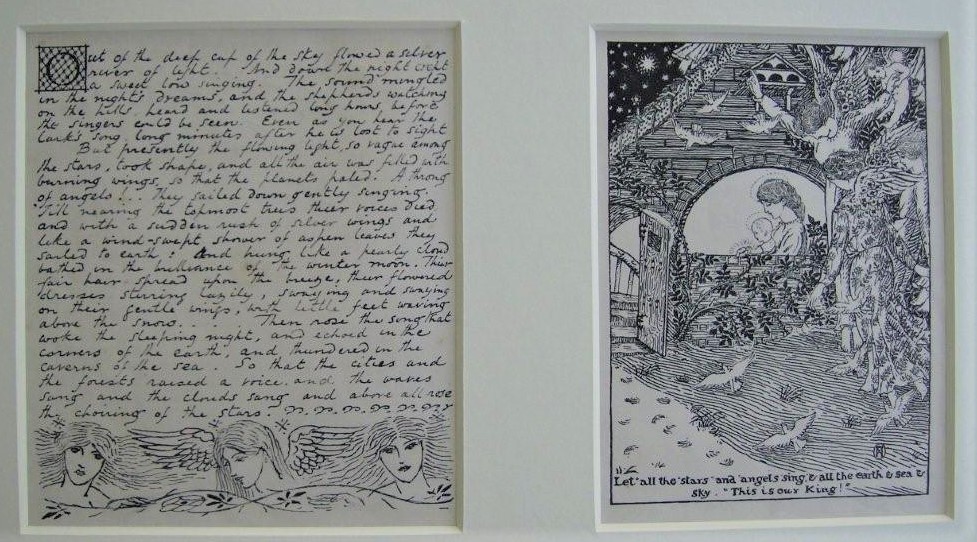 Out of the deep cup of the sky flowed a silver
river of light. And down the night went
a sweet low singing. The sound mingled
in the night's dreams, and the shepherds watching
on the hills heard and listened long hours before
the singers could be seen. Even as you hear the
lark's song long minutes after he is lost to sight
But presently the flowing light, so vague among
the stars, took shape, and all the air was filled with
burning wings, so that the planets paled. A throng
of angels... They sailed down gently singing.
Till nearing the topmost trees their voices died
and with a sudden rush of silver wings and
like a wind-swept shower of aspen leaves they
sailed to earth: And hung like a pearly cloud
bathed in the brilliance of the winter moon. Their
fair hair spread upon the breeze, their flowered
dresses stirring lazily, swaying and swaying
on their gentle wings, with little feet waving
above the snow.... Then rose the song that
woke the sleeping night, and echoed in the
corners of the earth, and thundered in the
caverns of the sea. So that the cities and
the forests raised a voice and the waves
sang and the clouds sang and above all rose
the choiring of the stars.
Let all the stars and angels sing, & all the earth & sea &
sky. "This is our King!"